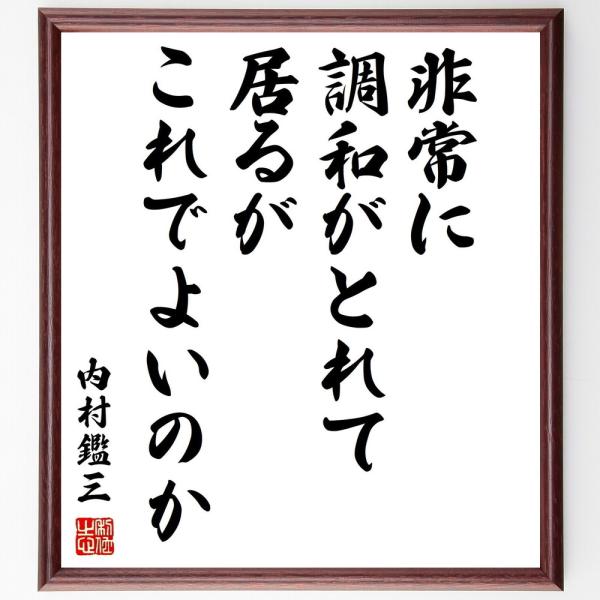 非常に
調和がとれて
居るが
これでよいのか
内村鑑三